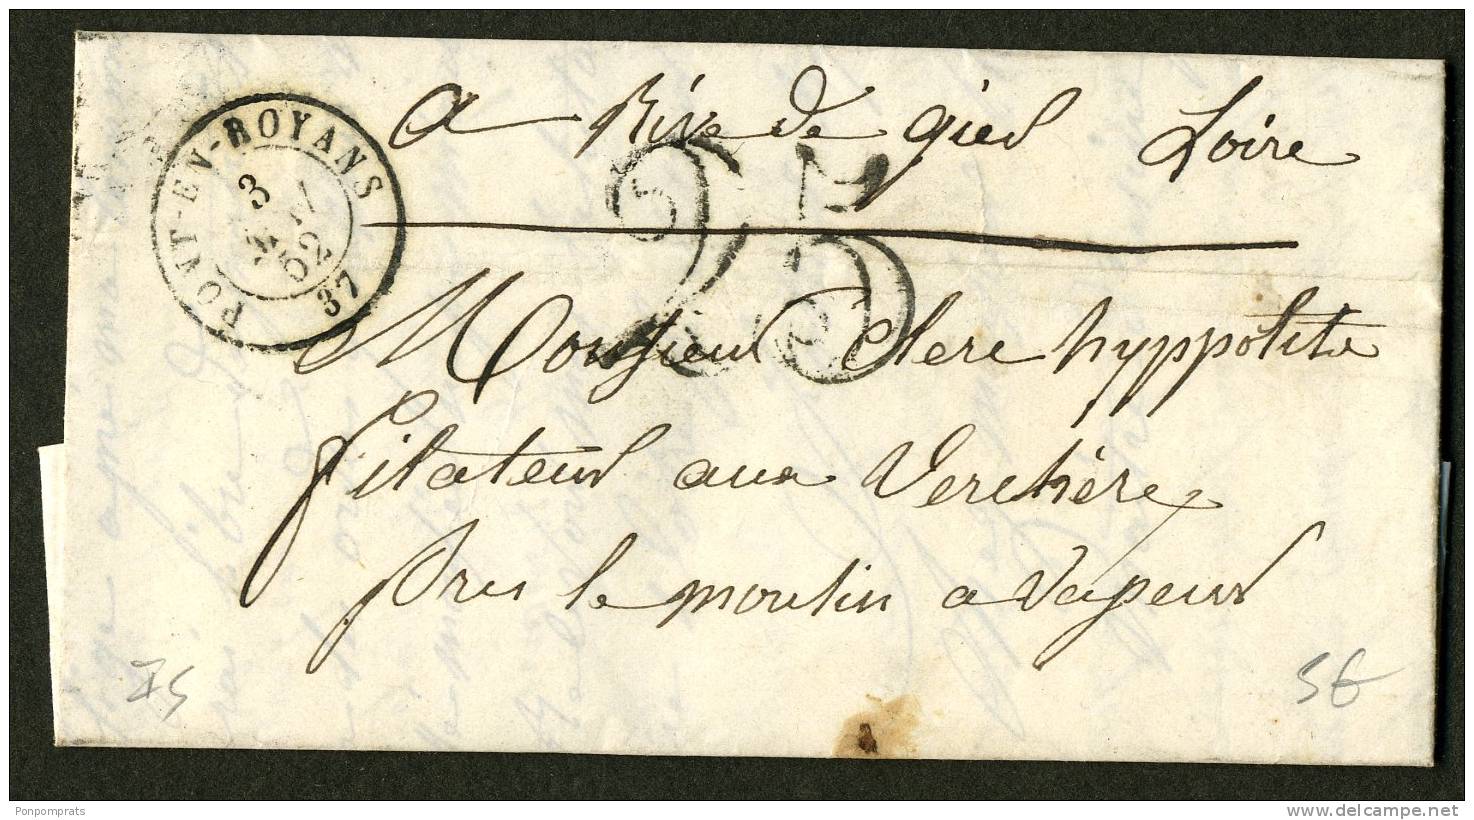 PONT-EN-ROYANS
3
52
37
25
a Rive de gier Loire
Monsieur Clerc hyppolite
filateur aux Verchère
pres le moulin a Vapeur
5€
Ponpomprats
www.delcampe.net